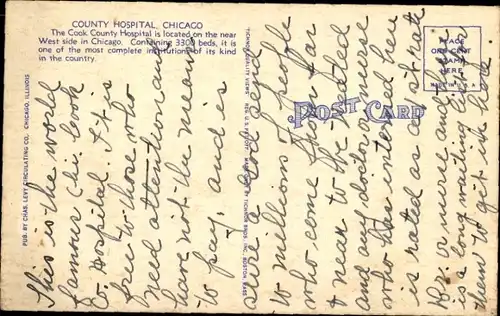 COUNTY HOSPITAL, CHICAGO
The Cook County Hospital is located on the near
West side in Chicago. Containing 3300 beds, it is
one of the most complete institutions of its kind
in the country.
PUB. BY CHAS. LEVY CIRCULATING CO., CHICAGO, ILLINOIS
"TICHNOR QUALITY VIEWS," REG. U. S. PAT. OFF. MADE ONLY BY TICHNOR BROS., INC., BOSTON, MASS.
POST CARD
PLACE
ONE CENT
STAMP
HERE
This is the world
famous Chi. Cook
Co. Hospital. It is
free to those who
need attention and
have not the means
to pay, and is
sure a God send
to millions of people
who come from far
& near to be treated
and any doctor or nurse
who has interned here
is rated as a 1st rate
Dr. or nurse and there
is a long waiting list for
them to get in here